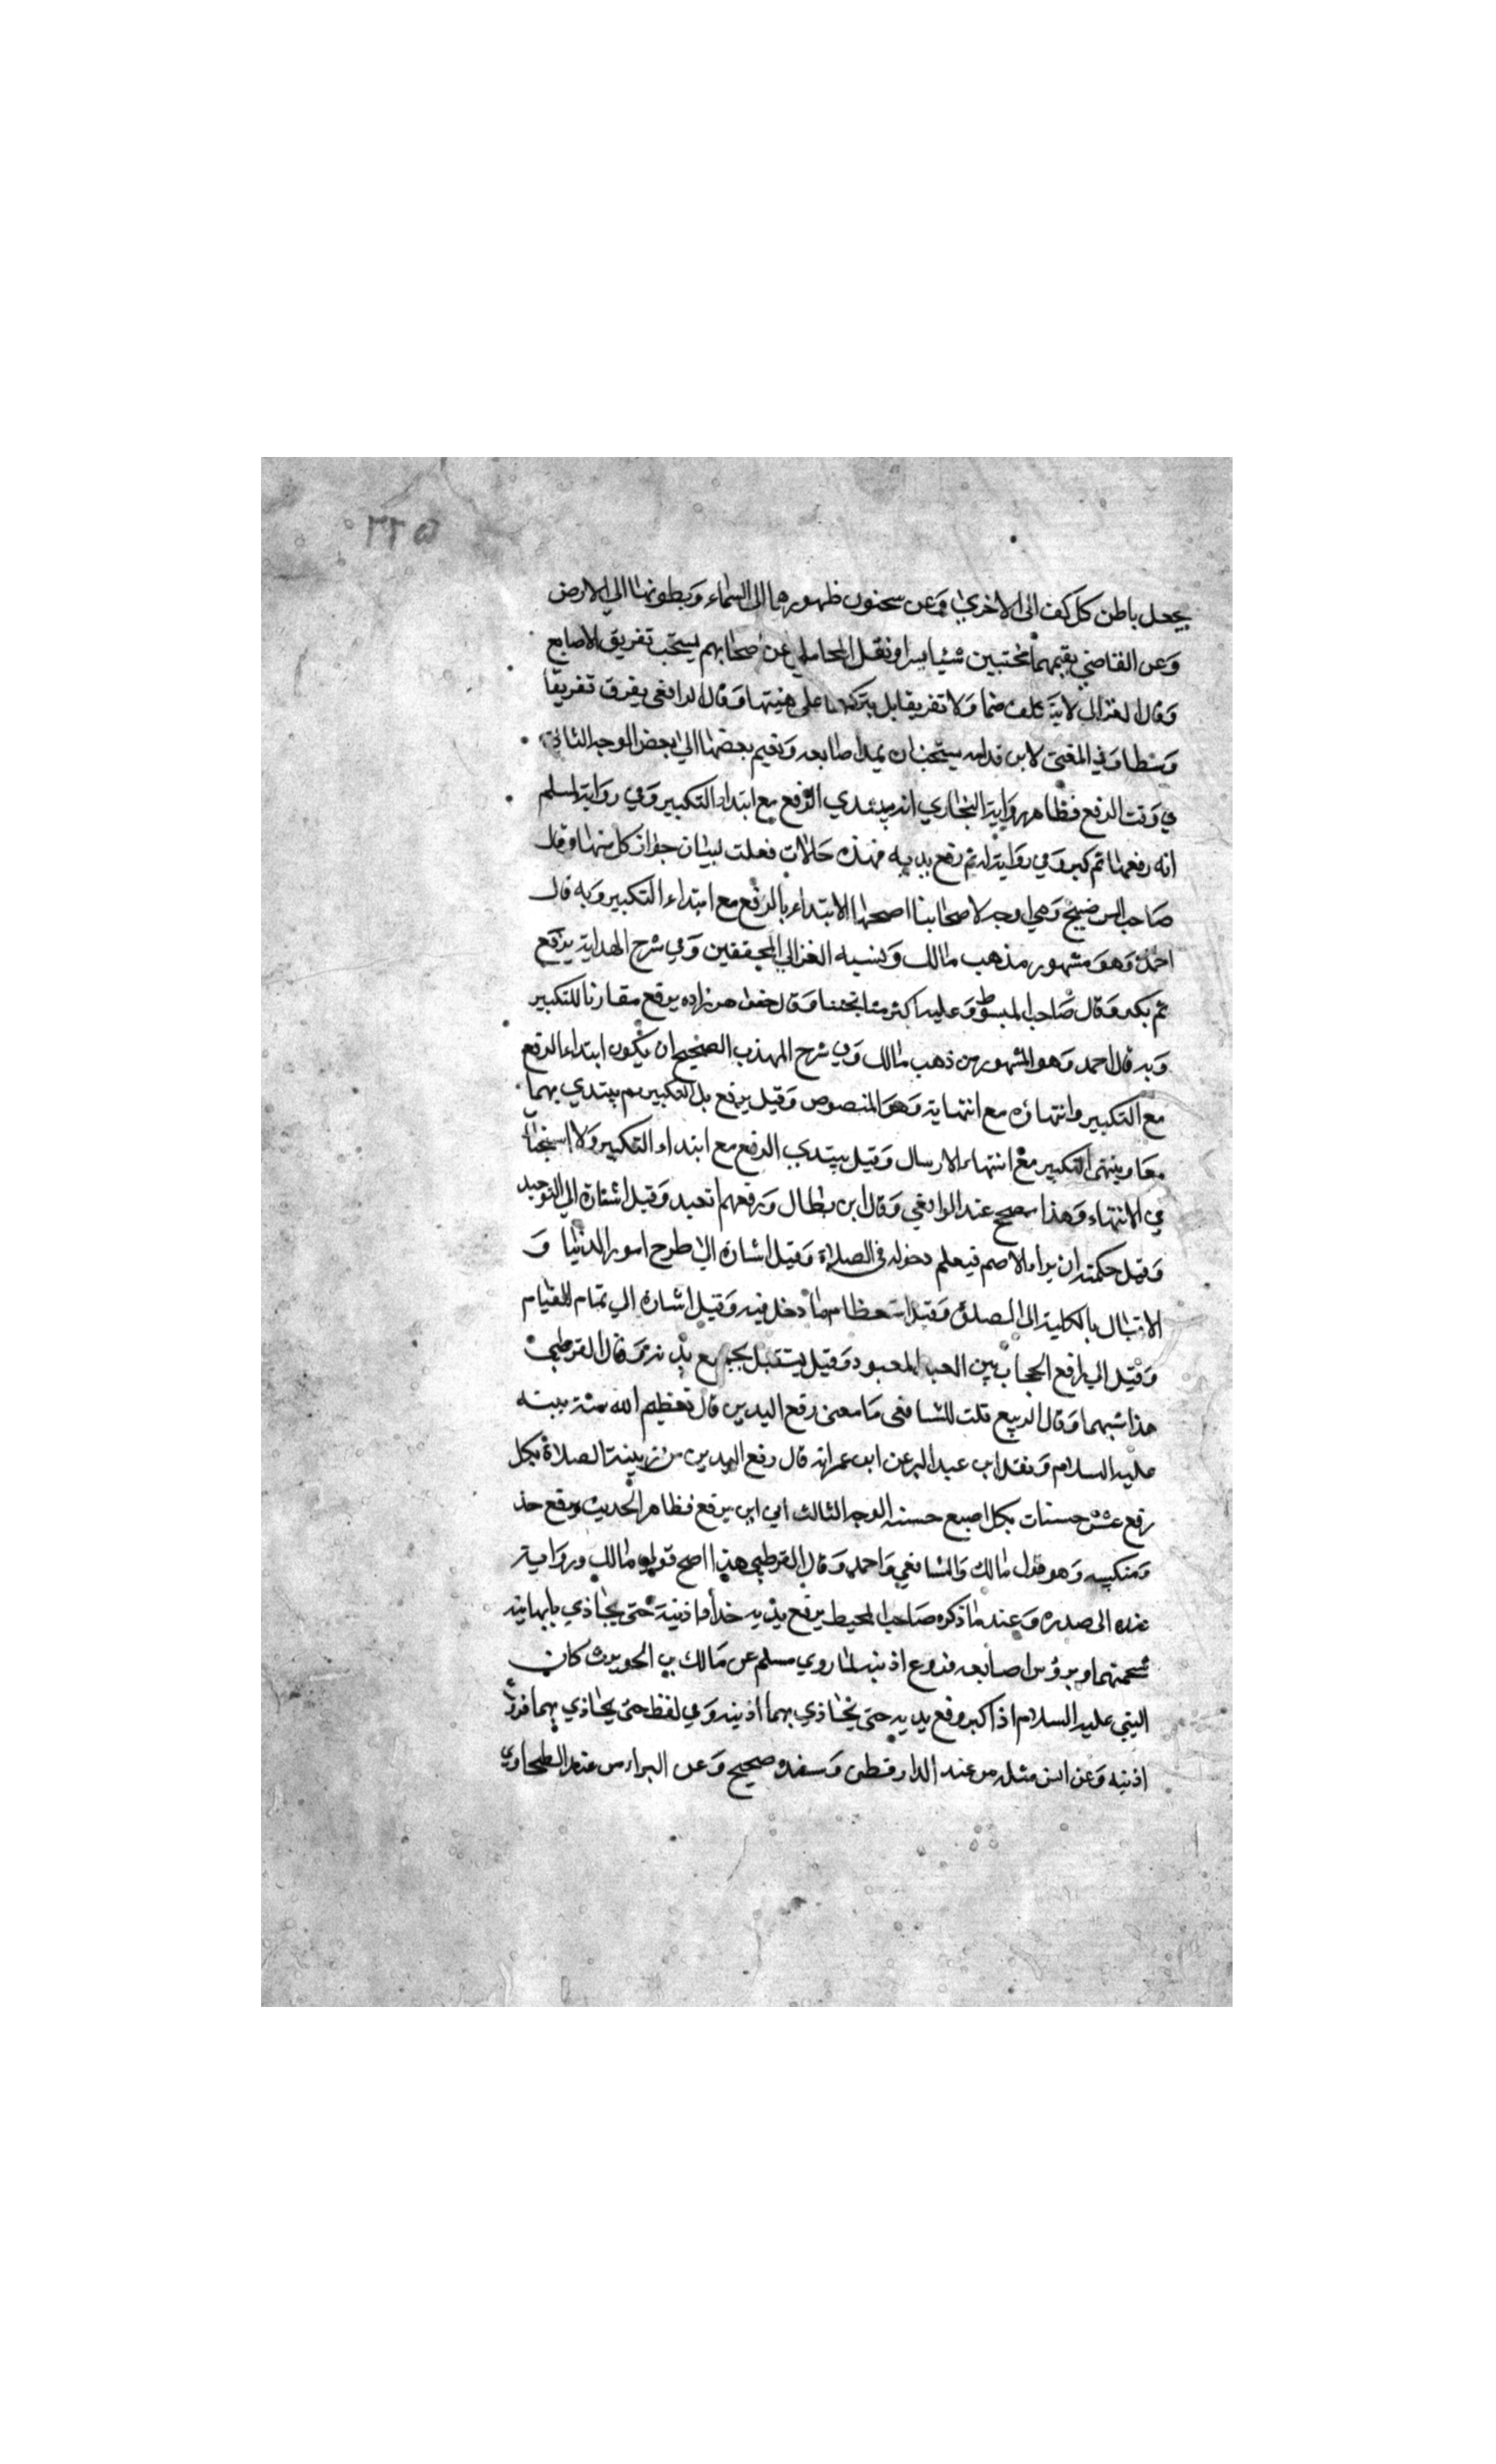 ٢٢٥
يجعل باطن كل كف الى الاخري وعن سحنون ظهورهما الى السماء وبطونهما الي الارض
وعن القاضي يقيمهما محنيتين شيئا يسرا ونقل المحاملي عن اصحابهم يستحب تفريق الاصابع
وقال الغزالي لا يتكلف ضما ولا تفريقا بل يتركهما على هيئتها وقال الرافعي يفرق تفريقا
وسطا وفي المغني لابن قدامه يستحب ان يمد اصابعه ويضم بعضها الي بعض الوجه الثاني
في وقت الرفع فظاهر رواية البخاري انه يبتدي الرفع مع ابتداء التكبير وفي رواية لمسلم
انه رفعهما ثم كبر وفي رواية له ثم رفع يديه فهذه حالات فعلت لبيان جواز كل منها وقال
صاحب التوضيح وهي اوجه لاصحابنا اصحها الابتداء بالرفع مع ابتداء التكبير وبه قال
احمد وهو مشهور مذهب مالك ونسبه الغزالي للمحققين وفي شرح الهداية يرفع
ثم يكبر وقال صاحب المبسوط وعليه اكثر مشايخنا وقال خواهر زاده يرفع مقارنا للتكبير
وبه قال احمد وهو المشهور من ذهب مالك وفي شرح المهذب الصحيح ان يكون ابتداء الرفع
مع التكبير وانتهاؤه مع انتهايه وهو المنصوص وقيل يرفع بلا تكبير ثم يبتدي بهما
معا وينتهي التكبير مع انتهاء الارسال وقيل يبتدي الرفع مع ابتداء التكبير ولا استحباب
في الانتهاء وهذا مصحح عند الرافعي وقال ابن بطال ورفعهم تعبد وقيل اشارة الي التوحيد
وقيل حكمته ان يراه الاصم فيعلم دخوله في الصلاة وقيل اشارة الي طرح امور الدنيا و
الاقبال بالكلية الى الصلاة وقيل استعظام ما دخل فيه وقيل اشارة الي تمام القيام
وقيل الي رفع الحجاب بين العبد المعبود وقيل يستقبل بجميع بدنه وقال القرطبي
هذا شبهها وقال الربيع قلت للشافعي ما معني رفع اليدين قال تعظيم الله سنة نبيه
عليه السلام ونقل ابن عبد البر عن ابن عمر انه قال رفع اليدين من زينة الصلاة بكل
رفع عشر حسنات بكل اصبع حسنة الوجه الثالث الي اين يرفع فظاهر الحديث يرفع حذ
ومنكبيه وهو قول مالك والشافعي واحمد وقال القرطبي هذا اصح قولي مالك ورواية
عنه الى صدره وعند ما ذكره صاحب المحيط يرفع يديه حذا اذنيه حتى يحاذي بابهاميه
شحمتهما وبرؤس اصابعه فروع اذنيه لما روي مسلم عن مالك بن الحويرث كان
النبي عليه السلام اذا كبر رفع يديه حتى يحاذي بهما اذنيه وفي لفظ حتى يحاذي بهما فروع
اذنيه وعن انس مثله من عند الدارقطني وسنده صحيح وعن البراء من عند الطحاوي